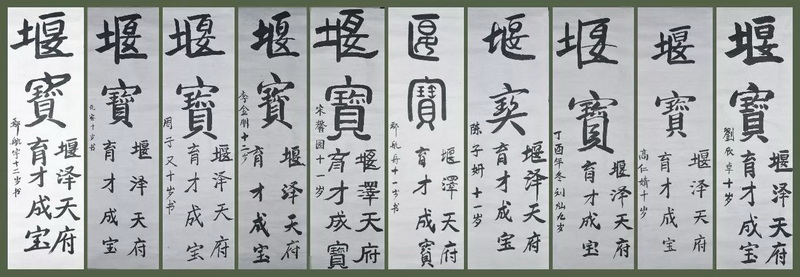 堰寶
堰泽天府
育才成宝
劉宸卓十岁
堰寶
堰泽天府
育才成宝
高仁婧十岁
堰寶
堰泽天府
育才成宝
丁酉年冬刘灿九岁
堰寶
堰泽天府
育才成宝
陈子妍十一岁
堰寶
堰澤天府
育才成寶
郅航舟十一岁书
堰寶
堰澤天府
育才成寶
宋馨园十一岁
堰寶
堰泽天府
育才成宝
李金刚十二岁
堰寶
堰泽天府
育才成宝
周子又十岁书
堰寶
堰泽天府
育才成宝
十岁书
堰寶
堰泽天府
育才成宝
郅航宇十二岁书